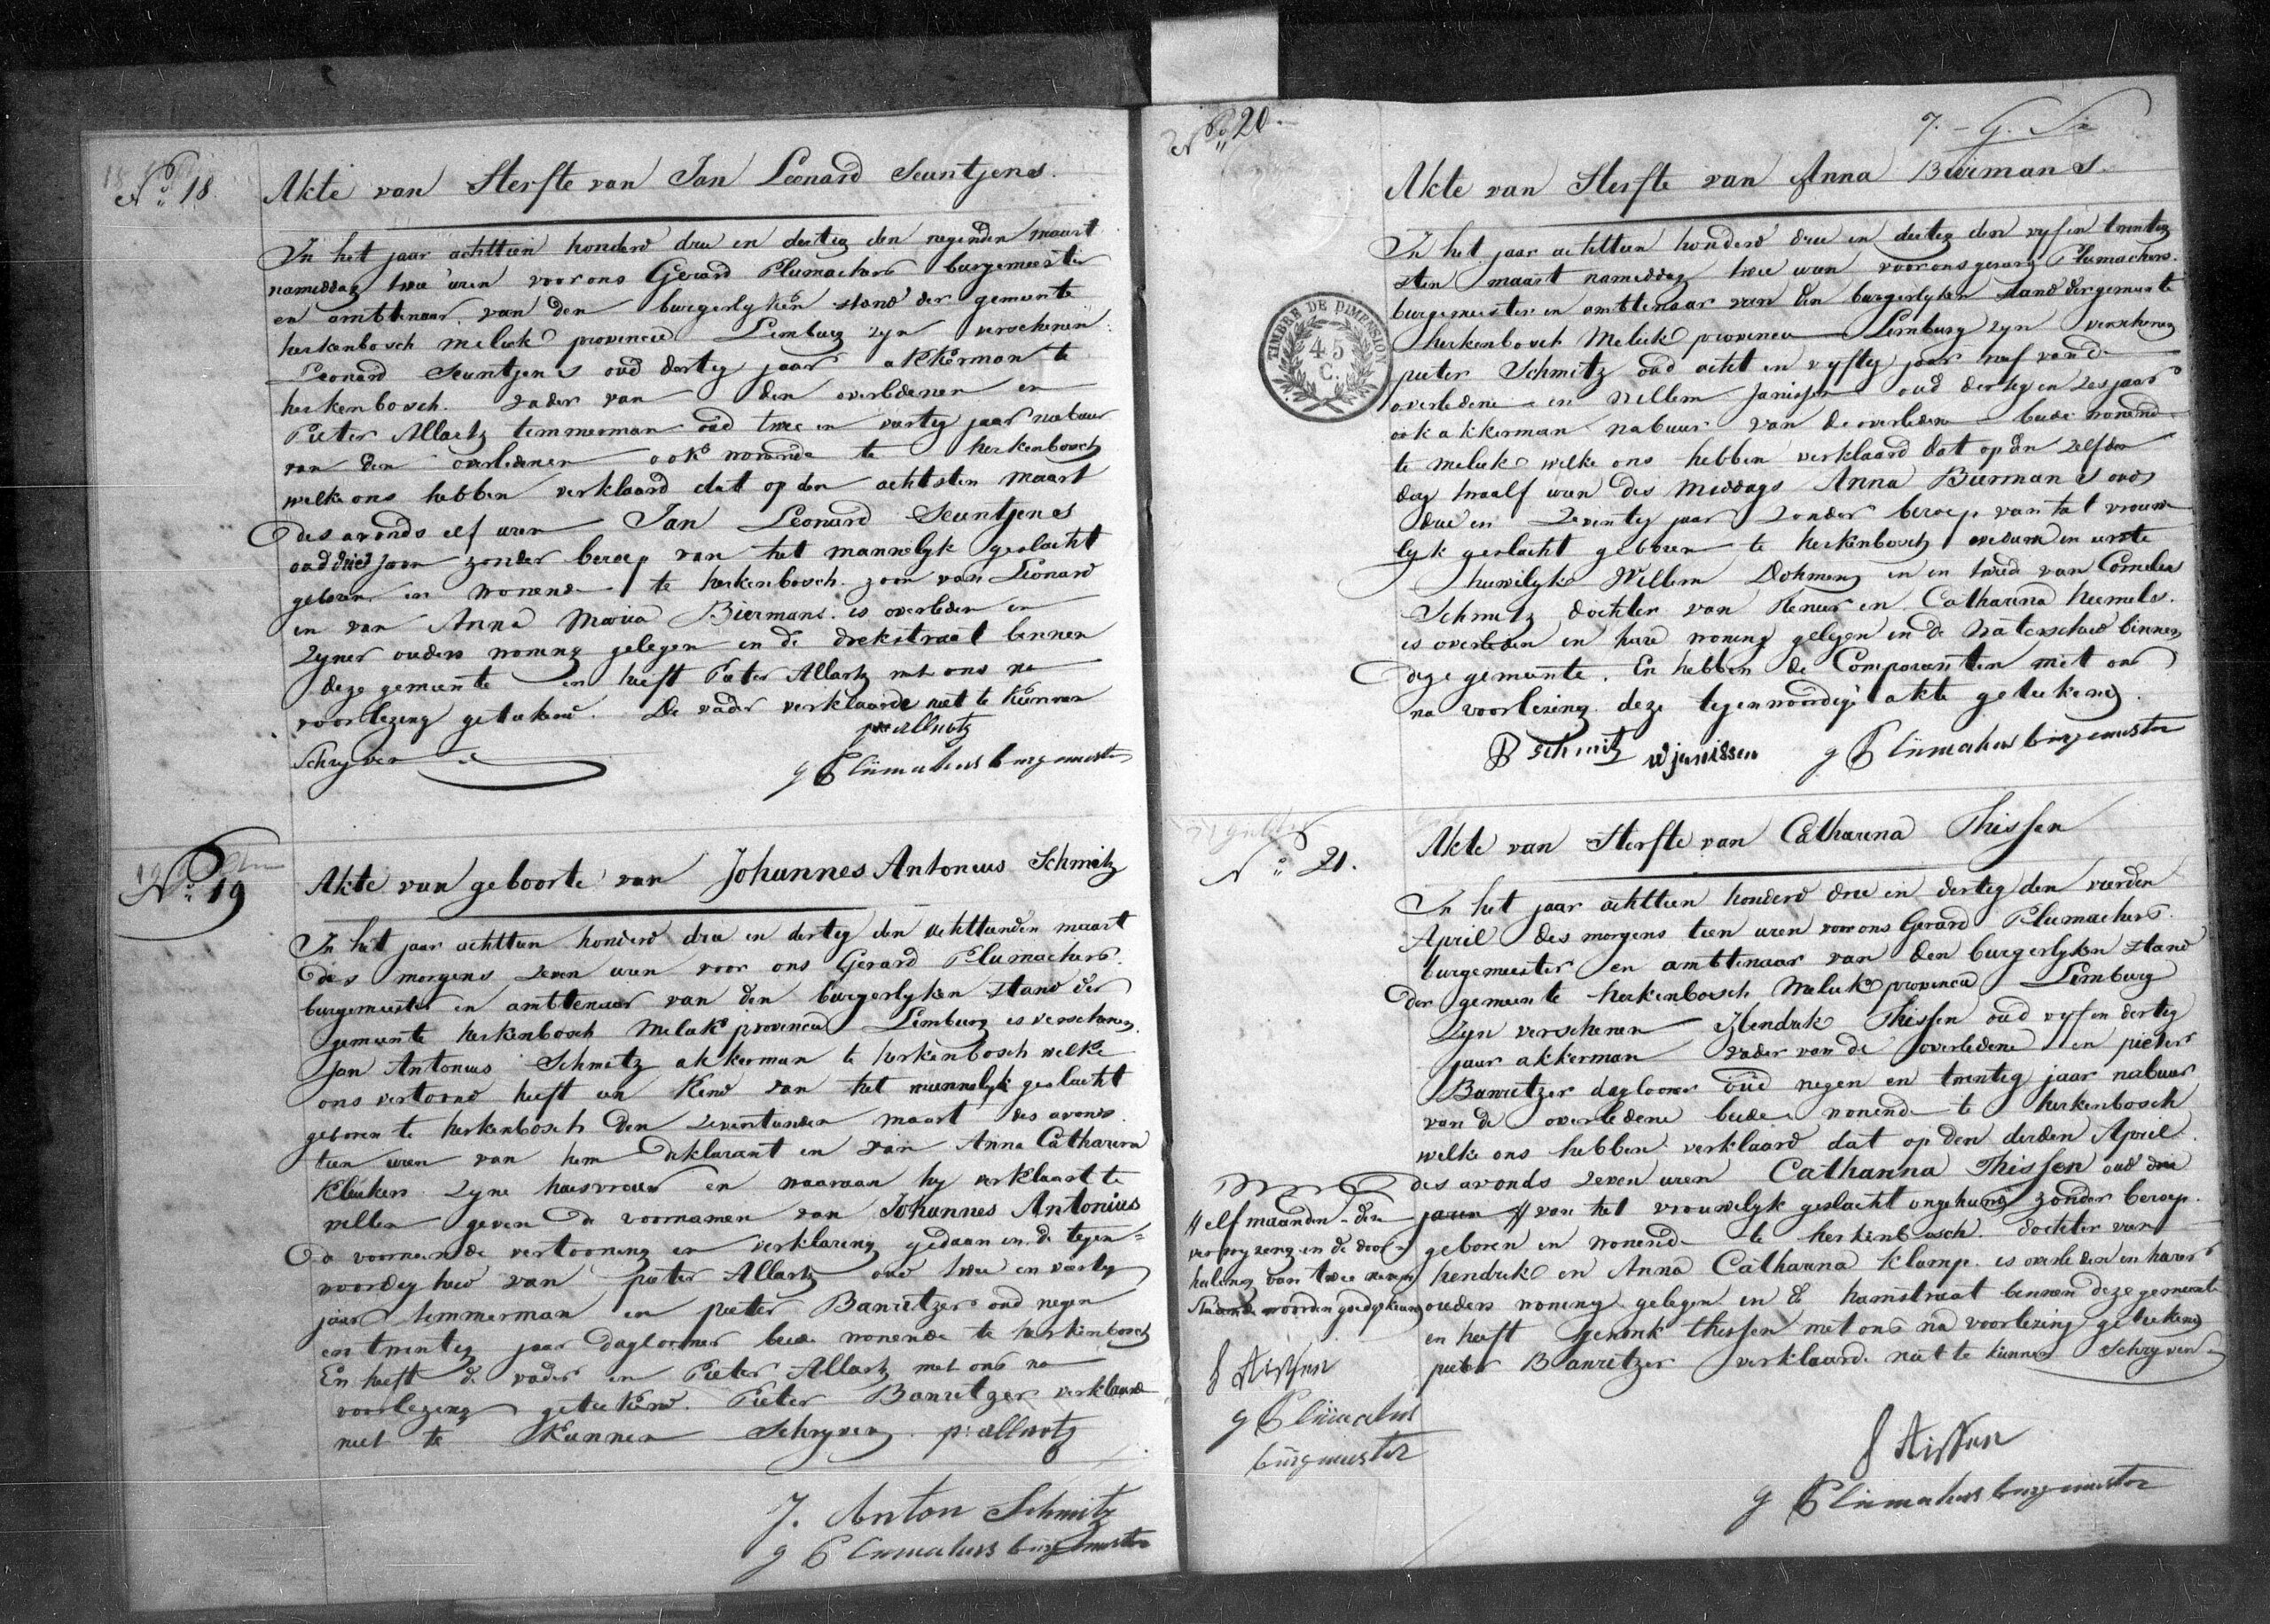 N.o 18.
Akte van Sterfte van Jan Leonard Seuntjens.
In het jaar achttien honderd drie en dertig den negenden maart
namiddag twee uren voor ons Gerard Plumachers burgemeester
en ambtenaar van den burgerlyken stand der gemeente
herkenbosch melick provincie Limburg zyn verschenen
Leonard Seuntjens oud dertig jaar akkerman te
herkenbosch. vader van den overledenen en
Pieter Allartz temmerman oud twee en vertig jaar nabuur
van den overledenen ook wonende te herkenbosch
welke ons hebben verklaard dat op den achtsten maart
des avonds elf uren Jan Leonard Seuntjens
oud drie jaar zonder beroep van het mannelyk geslacht
geboren en wonende te herkenbosch. zoon van Leonard
en van Anna Maria Biermans. is overleden in
zyner ouders woning gelegen in de drekstraat binnen
deze gemeente en heeft Pieter Allartz met ons na
voorlezing getekend. De vader verklaarde niet te kunnen
Schryven
p: allartz
g Plümachers burgemeester
N.o 19
Akte van geboorte van Johannes Antonius Schmitz
In het jaar achttien honderd drie en dertig den achttienden maart
des morgens zeven uren voor ons Gerard Plumachers.
burgemeester en ambtenaar van den burgerlyken stand der
gemeente herkenbosch Melick provincie Limburg is verschenen
Jan Antonius Schmitz akkerman te herkenbosch welke
ons vertoond heeft een kind van het mannelyk geslacht
geboren te herkenbosch den zeventienden maart des avonds
tien uren van hem deklarant en van Anna Catharina
Kleukers zyne huisvrouw en waaraan hy verklaart te
willen geven de voornamen van Johannes Antonius
de voornoemde vertooning en verklaring gedaan in de tegen=
woordig heid van pieter Allartz oud twee en vertig
jaar temmerman en pieter Banritzer oud negen
en twentig jaar dagloorner beide wonende te herkenbosch
En heeft de vader en Pieter Allartz met ons na
voorlezing geteekend. Pieter Banritzer verklaarde
niet te kunnen Schryven. p: allartz
J. Anton Schmitz
g Plümachers burgemeester
N.o 20.
7.
TIMBRE DE DIMENSION
45
C.
Akte van Sterfte van Anna Biermans.
In het jaar achttien honderd drie en dertig den vyf en twentig
sten maart namiddag twee uren voor ons gerard Plumachers.
burgemeester en ambtenaar van den burgerlyken stand der gemeente
herkenbosch Melick provincie Limburg zyn verschenen
pieter Schmitz oud acht en vyftig jaar neef van de
overledene en Willem Janissen oud dertig en zes jaar
ook akkerman nabuur van de overledene beide wonende
te melick welke ons hebben verklaard dat op den zelfden
dag twaalf uren des middags Anna Biermans oud
drie en zeventig jaar zonder beroep van het vrouwe
lyk geslacht geboren te herkenbosch weduwe in eerste
huwelyk Willem Dohmen en in twede van Cornelis
Schmitz dochter van Renier en Catharina heemels.
is overleden in hare woning gelegen in de Waterschied binnen
deze gemeente. En hebben de Comparanten met ons
na voorlezing deze tegenwoordige akte geteekend.
P schmitz w janissen g Plümachers burgemeester
N.o 21.
Akte van Sterfte van Catharina Thissen
In het jaar achttien honderd drie en dertig den vierden
April des morgens tien uren voor ons Gerard Plumachers.
burgemeester en ambtenaar van den burgerlyken stand
der gemeente herkenbosch Melick provincie Limburg
zyn verschenen Hendrik Thissen oud vyf en dertig
jaar akkerman vader van de overledene en pieter
Banritzer dagloorner oud negen en twentig jaar nabuur
van de overledene beide wonende te herkenbosch
welke ons hebben verklaard dat op den derden April
des avonds zeven uren Catharina Thissen oud drie
jaren // van het vrouwelyk geslacht ongehuwd zonder beroep.
geboren en wonende te herkenbosch. dochter van
hendrik en Anna Catharina Klomp. is overleden in harer
ouders woning gelegen in de hamstraat binnen deze gemeente
en heeft henrik thissen met ons na voorlezing geteekend
pieter Banritzer verklaarde niet te kunnen Schryven
// elf maanden. den
verwyzeng en de door=
haleng van twee neven
staande woorden goedgekeurd
h thissen
g Plümachers
burgemeester
h thissen
g Plümachers burgemeester